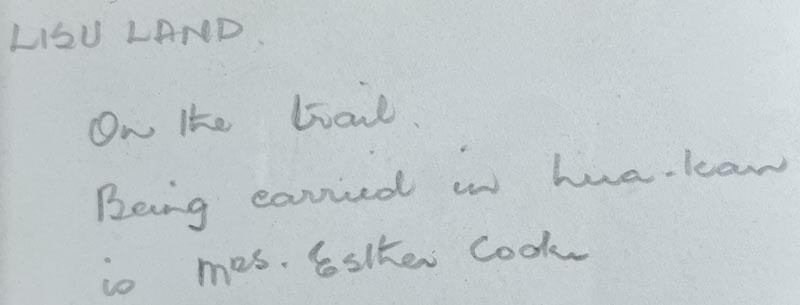 LISU LAND.
On the trail.
Being carried in hua-kan
is Mrs. Esther Cooke